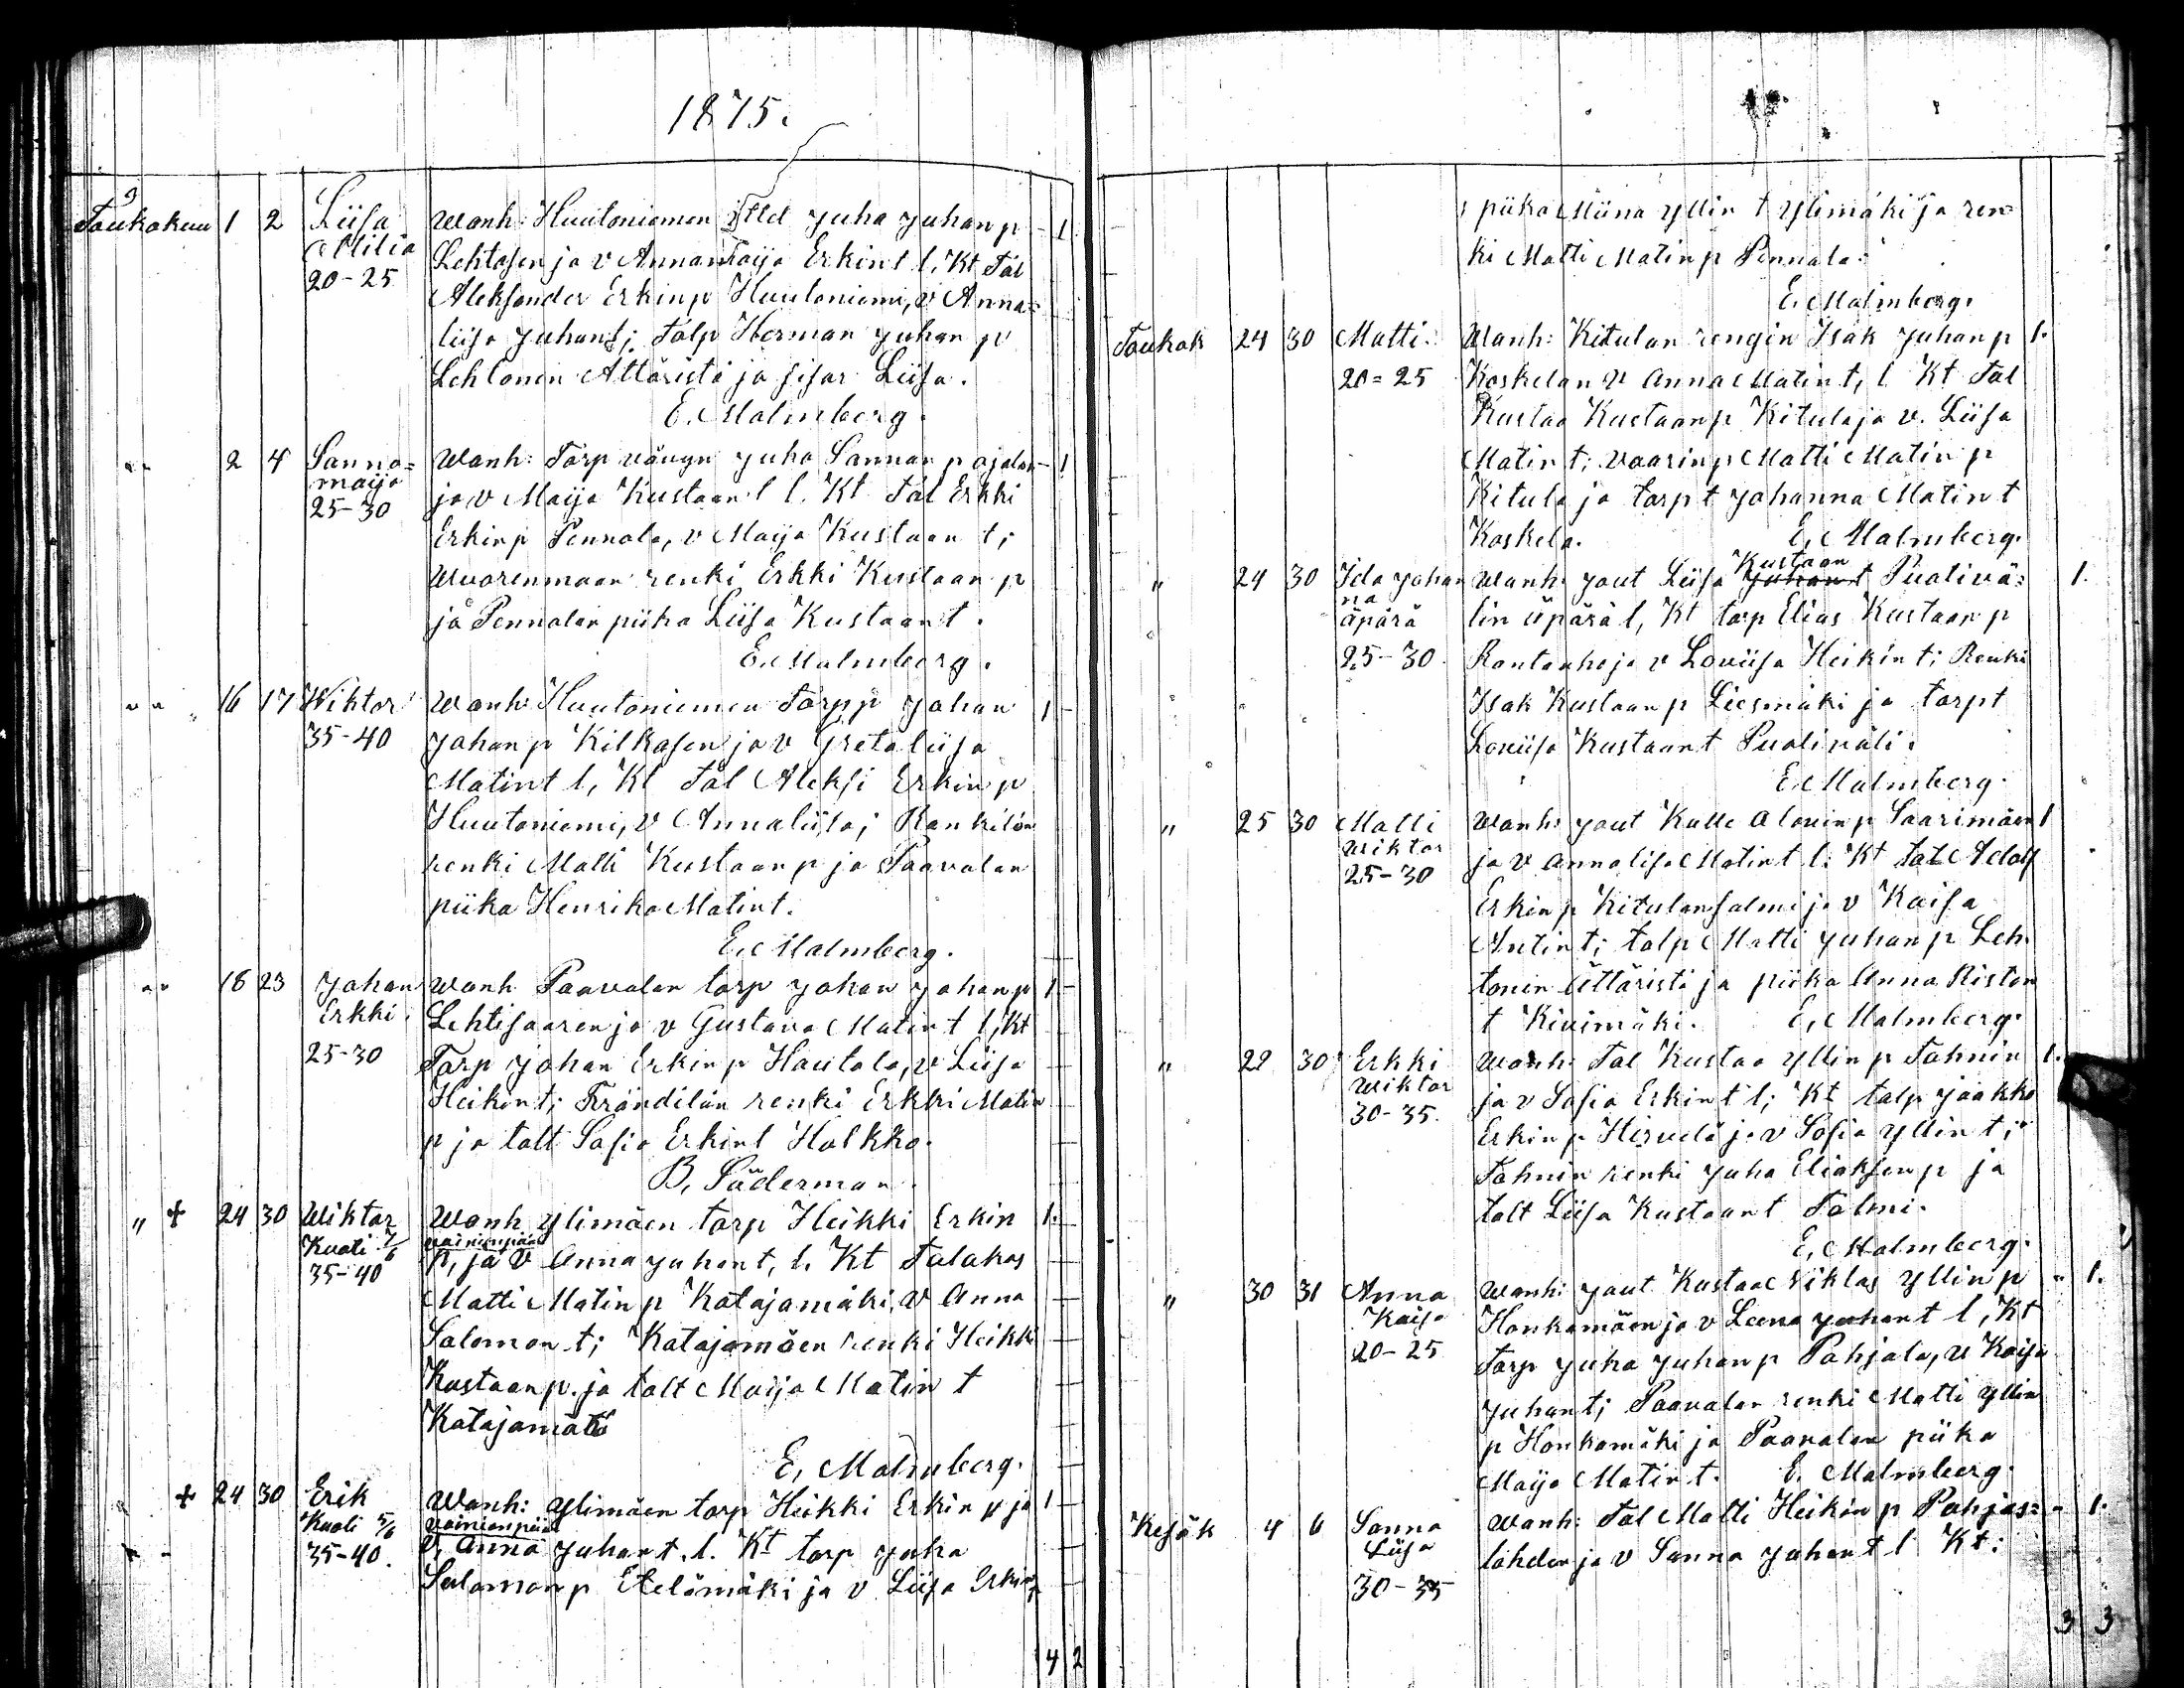 1875.
Toukokuu 1 2 Liisa Wanh: Huutoniemen Juha Juhan p - 1
Milia Lehtosen ja v Annamaija Erkin t l. Kt Tal
20-25 Aleksander Erkin p Huutoniemi, v Anna=
liisa Juhant; Talp Herman Juhan p
Lehtonen Ättäristä ja sisar Liisa.
E. Malmberg.
" 2 4 Sanna= Wanh: Torp vävyn Juha Sannan p ojalan - 1
maija ja v Maija Kustaan t l. Kt Tal Erkki
25-30 Erkin p Pennala, v Maija Kustaan t;
Wuorenmaan renki Erkki Kustaan p
ja Pennalan piika Liisa Kustaan t.
E. Malmberg.
" 16 17 Wiktor Wanh Huutoniemen Torpp Johan 1 -
35-40 Johan p Kilkasen ja v Gretaliisa
Matin t l, Kt Tal Aleksi Erkin p
Huutoniemi, v Annaliisa; Rankilan
renki Matti Kustaan p ja Paavolan
piika Henrika Matin t.
E. Malmberg.
" 18 23 Johan Wanh Paavolan torp Johan Johan p 1 -
Erkki. Lehtisaaren ja v Gustava Matin t l, Kt
25-30 Torp Johan Erkin p Hautala, v Liisa
Heikin t; Frändilän renki Erkki Matin
p ja talt Sofia Erkin t Halkko.
B. Söderman.
" + 24 30 Wiktor Wanh Ylimäen torp Heikki Erkin 1. -
Kuoli 7/6 vainionpää
35-40 p, ja v Anna Juhan t, l. Kt Talakas
Matti Matin p Katajamäki, v Anna
Salomon t; Katajamäen renki Heikki
Kustaan p. ja talt Maija Matin t
Katajamäki
E, Malmberg.
+ 24 30 Erik Wanh: Ylimäen torp Heikki Erkin p ja 1 -
Kuoli 5/6 vainionpää
35-40. v, Anna Juhan t, l. Kt torp Juha
Salomon p Etelämäki ja v Liisa Erkin
4 2
piika Miina Yllin t Ylimäki ja ren=
ki Matti Matin p Pennala.
E. Malmberg.
Toukok 24 30 Matti. Wanh: Kitulan rengin Isak Juhan p 1.
20=25 Koskelan v Anna Matin t, l Kt Tal
Kustaa Kustaan p Kitula ja v. Liisa
Matin t; vaarin p Matti Matin p
Kitula ja torp t Johanna Matin t
Koskela. E. Malmberg.
Kustaan
" 24 30 Ida Johan Wanh: Jout Liisa Juhan t Puolivä= 1.
na
äpärä lin äpärä l, Kt torp Elias Kustaan p
25-30. Rantaho ja v Loviisa Heikin t; Renki
Isak Kustaan p Liesmäki ja torpt
Loviisa Kustaan t Puoliväli.
E. Malmberg.
" 25 30 Matti Wanh: Jout Kalle Alovin p Saarimäen 1
Wiktor ja v Annalisa Matin t l. Kt Tal Adolf
25-30 Erkin p Kitulansalmi ja v Kaisa
Antin t; talp Matti Juhan p Leh
tonin Ättäristä ja piika Anna Riston
t Kivimäki. E, Malmberg.
" 22 30 Erkki Wanh: Tal Kustaa Yllin p Tahnin 1.
Wiktor ja v Sofia Erkin t l; Kt talp Jaakko
30-35. Erkin p Hirvelä ja v Sofia Yllin t;
Tahnin renki Juha Eliaksen p ja
talt Liisa Kustaan t Talmi.
E, Malmberg.
" 30 31 Anna Wanh: Jout Kustaa Niklas Yllin p " 1.
Kaisa Honkamäen ja v Leena Juhan t l, Kt
20-25 Torp Juha Juhan p Pohjala, v Kaisa
Juhan t; Paavolan renki Matti Yllin
p Honkamäki ja Paavolan piika
Maija Matin t. E. Malmberg.
Kesäk 4 6 Sanna Wanh: Tal Matti Heikin p Pohjas= " 1.
Liisa lähden ja v Sanna Juhan t l Kt:
30-35
3 3